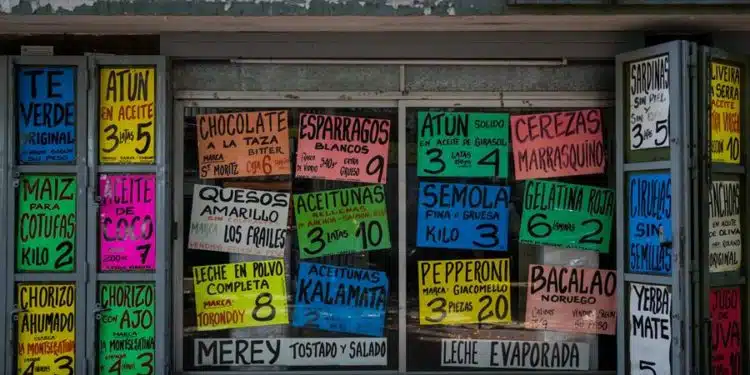 TE
VERDE
ORIGINAL
MAIZ
PARA
COTUFAS
KILO 2
CHORIZO
AHUMADO
MARCA
LA MONTSERRATINA
4 3
ATUN
EN ACEITE
3 LATAS 5
ACEITE
DE
COCO
200 CC 7
CHORIZO
CON AJO
MARCA
LA MONTSERRATINA
4 3
CHOCOLATE
A LA TAZA
BITTER
MARCA
ST MORITZ CAJA 6
ESPARRAGOS
BLANCOS
9
QUESOS
AMARILLO
MARCA
LOS FRAILES
ACEITUNAS
RELLENAS
3 LATAS 10
LECHE EN POLVO
COMPLETA
MARCA
TORONDOY 8
ACEITUNAS
KALAMATA
MEREY TOSTADO Y SALADO
ATUN SOLIDO
EN ACEITE DE GIRASOL
3 LATAS 4
CEREZAS
MARRASQUINO
SEMOLA
FINA O GRUESA
KILO 3
GELATINA ROJA
6 LAMINAS 2
PEPPERONI
MARCA GIACOMELLO
3 PIEZAS 20
BACALAO
NORUEGO
LECHE EVAPORADA
SARDINAS
SIN PIEL
3 5
CIRUELAS
SIN
SEMILLAS
YERBA
MATE
5
10